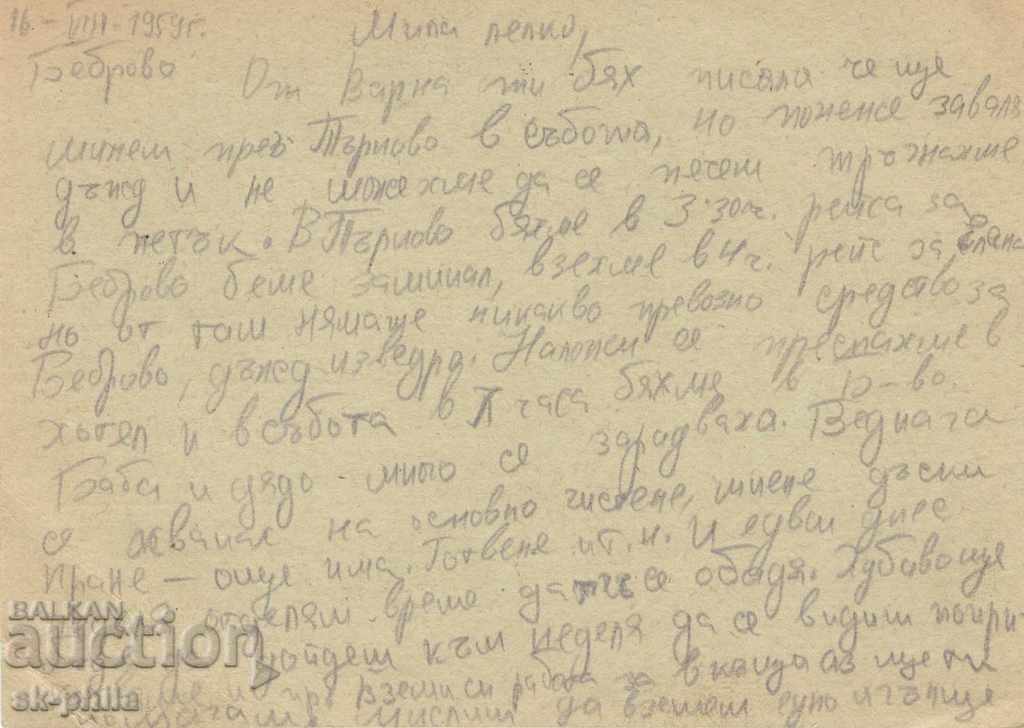 16.-VIII-1959г. Мила лелко,
Беброво От Варна ти бях писала че ще
минем през Търново в събота, но понеже заваля
дъжд и не можехме да се печем тръгнахме
в петък. В Търново бяхме в 3.30ч. рейса за
Беброво беше заминал, взехме в 4ч. рейс за Елена
но от там нямаше никакво превозно средство за
Беброво, дъжд из ведро. Наложи се преспахме в
хотел и в събота в часа бяхме в Б-во.
Баба и дядо много се зарадваха. Веднага
се хванах на основно чистене, миене дъски
пране - още има. Готвене и т.н. И едвам днес
отделям време да ти се обадя. Хубаво ще
дойдеш към неделя да се видим
Вземи си работа за в къща аз ще ти
помагам. Мислиш да вземем едно
BALKAN
auction
sk-phila